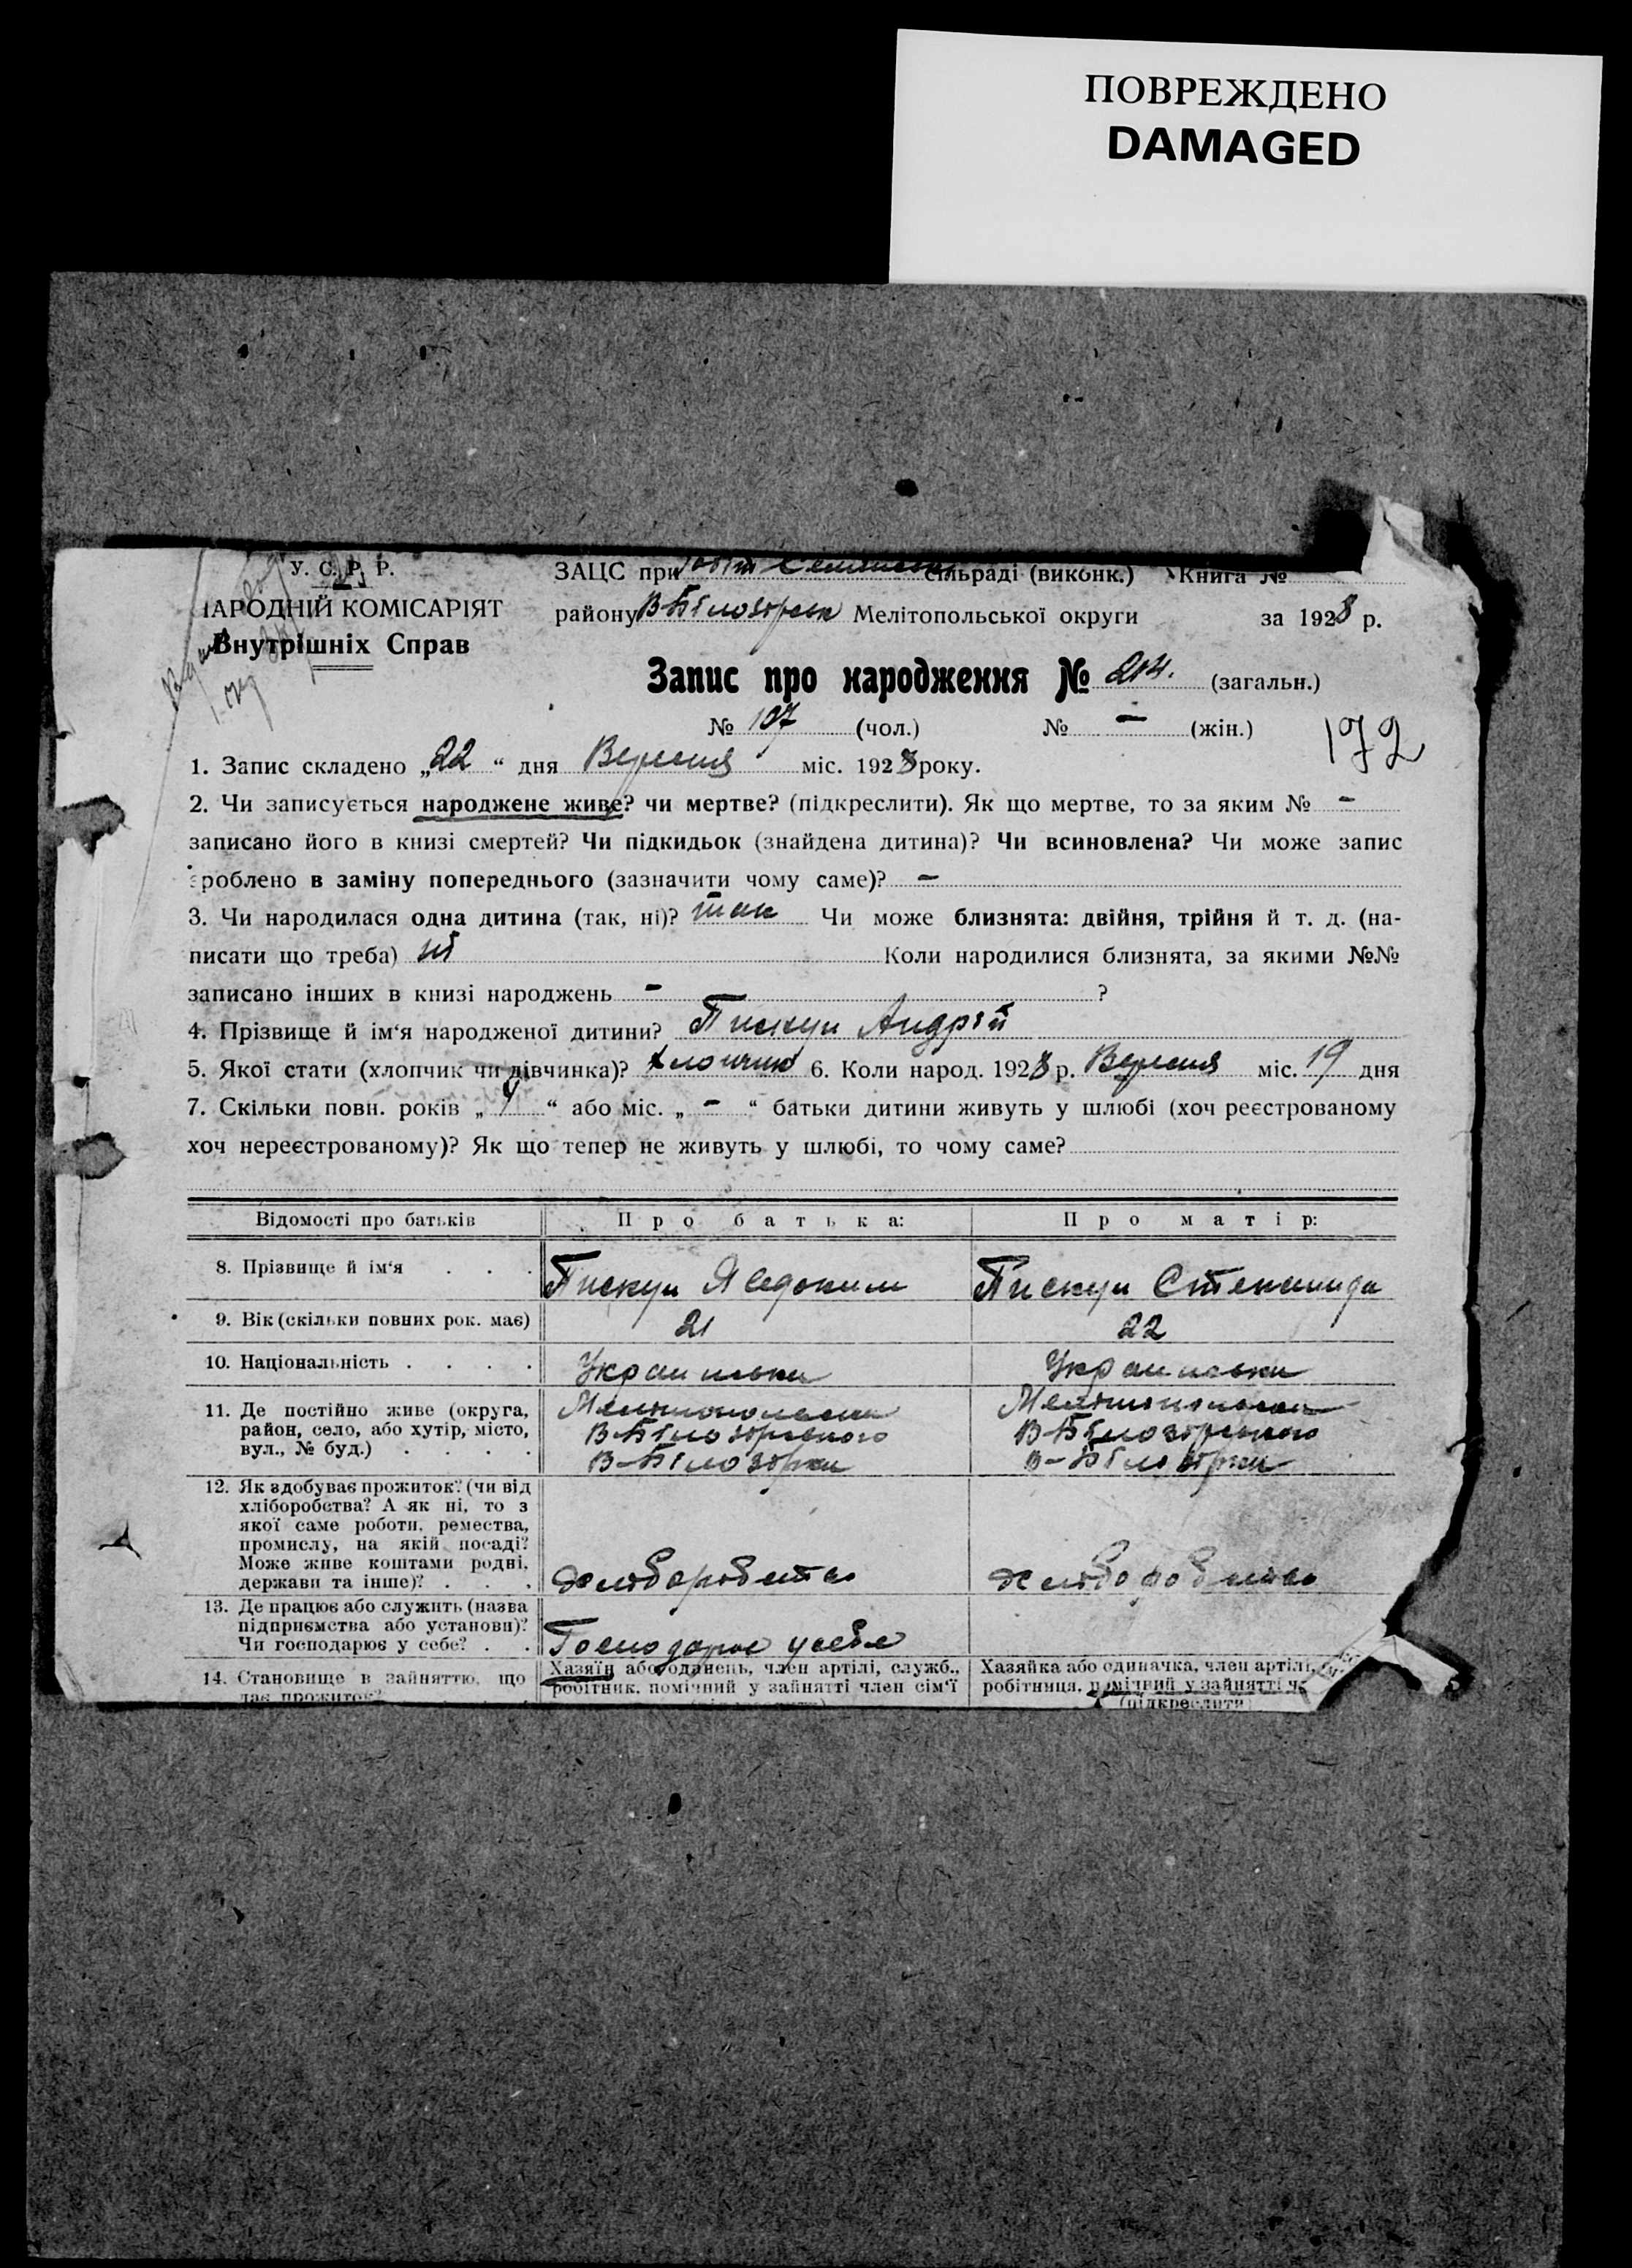 ПОВРЕЖДЕНО
DAMAGED
У. С. Р. Р.
НАРОДНІЙ КОМІСАРІЯТ
Внутрішніх Справ
ЗАЦС при сільраді (виконк.) Книга №
району В-Білозірськ Мелітопольської округи за 1928 р.
Запис про народження № 214. (загальн.)
№ 107 (чол.) № – (жін.)
172
1. Запис складено „22“ дня Вересня міс. 1928 року.
2. Чи записується народжене живе? чи мертве? (підкреслити). Як що мертве, то за яким № –
записано його в книзі смертей? Чи підкидьок (знайдена дитина)? Чи всиновлена? Чи може запис
зроблено в заміну попереднього (зазначити чому саме)? –
3. Чи народилася одна дитина (так, ні)? так Чи може близнята: двійня, трійня й т. д. (на-
писати що треба) ні Коли народилися близнята, за якими №№
записано інших в книзі народжень – ?
4. Прізвище й ім‘я народженої дитини? Пискун Андрій
5. Якої стати (хлопчик чи дівчинка)? хлопчик 6. Коли народ. 1928 р. Вересня міс. 19 дня
7. Скільки повн. років „ “ або міс. „ – “ батьки дитини живуть у шлюбі (хоч реєстрованому
хоч нереєстрованому)? Як що тепер не живуть у шлюбі, то чому саме?
Відомості про батьків Про батька: Про матір:
8. Прізвище й ім‘я . . . Пискун Явдоким Пискун Степанида
9. Вік (скільки повних рок. має) 21 22
10. Національність . . . . Украински Украински
11. Де постійно живе (округа, Мелітопольська Мелітопольська
район, село, або хутір, місто, В-Білозірського В-Білозірського
вул., № буд.) . . . . В-Білозірки В-Білозірки
12. Як здобуває прожиток? (чи від
хліборобства? А як ні, то з
якої саме роботи, ремества,
промислу, на якій посаді?
Може живе коштами родні,
держави та інше)? . . . хліборобство хліборобство
13. Де працює або служить (назва
підприємства або установи)?
Чи господарює у себе? . . Господарює у себе
14. Становище в зайняттю, що Хазяїн або одинець, член артілі, служб., Хазяйка або одиначка, член артілі,
дає прожиток? робітник, помічний у зайнятті член сім‘ї робітниця, помічний у зайнятті
(підкреслити)